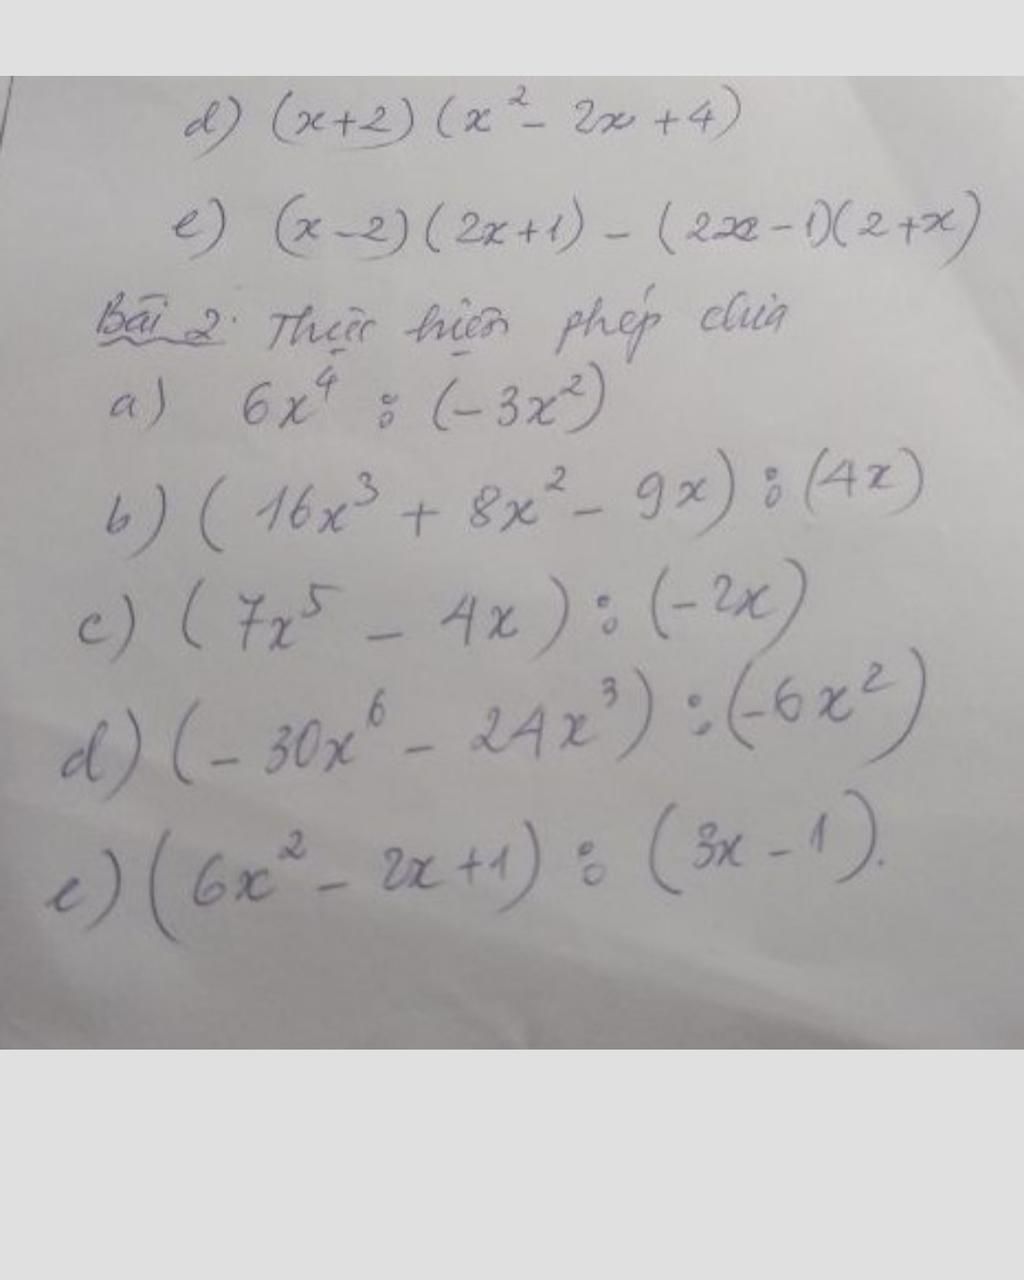 d) (x+2)(x² - 2x + 4)
e) (x-2)(2x+1) - (2x-1)(2+x)
Bài 2: Thực hiện phép chia
a) 6x⁴ : (-3x²)
b) (16x³ + 8x² - 9x) : (4x)
c) (7x⁵ - 4x) : (-2x)
d) (-30x⁶ - 24x³) : (-6x²)
e) (6x² - 2x + 1) : (3x - 1).